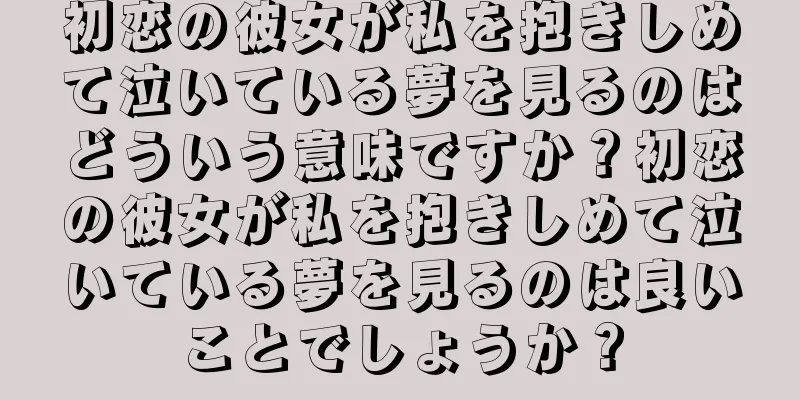 初恋の彼女が私を抱きしめ
て泣いている夢を見るのは
どういう意味ですか？初恋
の彼女が私を抱きしめて泣
いている夢を見るのは良い
ことでしょうか？